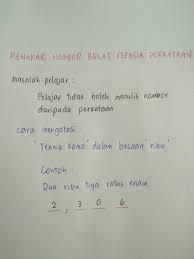 MENUKAR NOMBOR BULAT KEPADA PERKATAAN
Masalah pelajar :
Pelajar tidak boleh menulis nombor
daripada perkataan
Cara mengatasi :
"Teknik koma" dalam bacaan "ribu"
Contoh :
Dua ribu tiga ratus enam
2 , 3 0 6